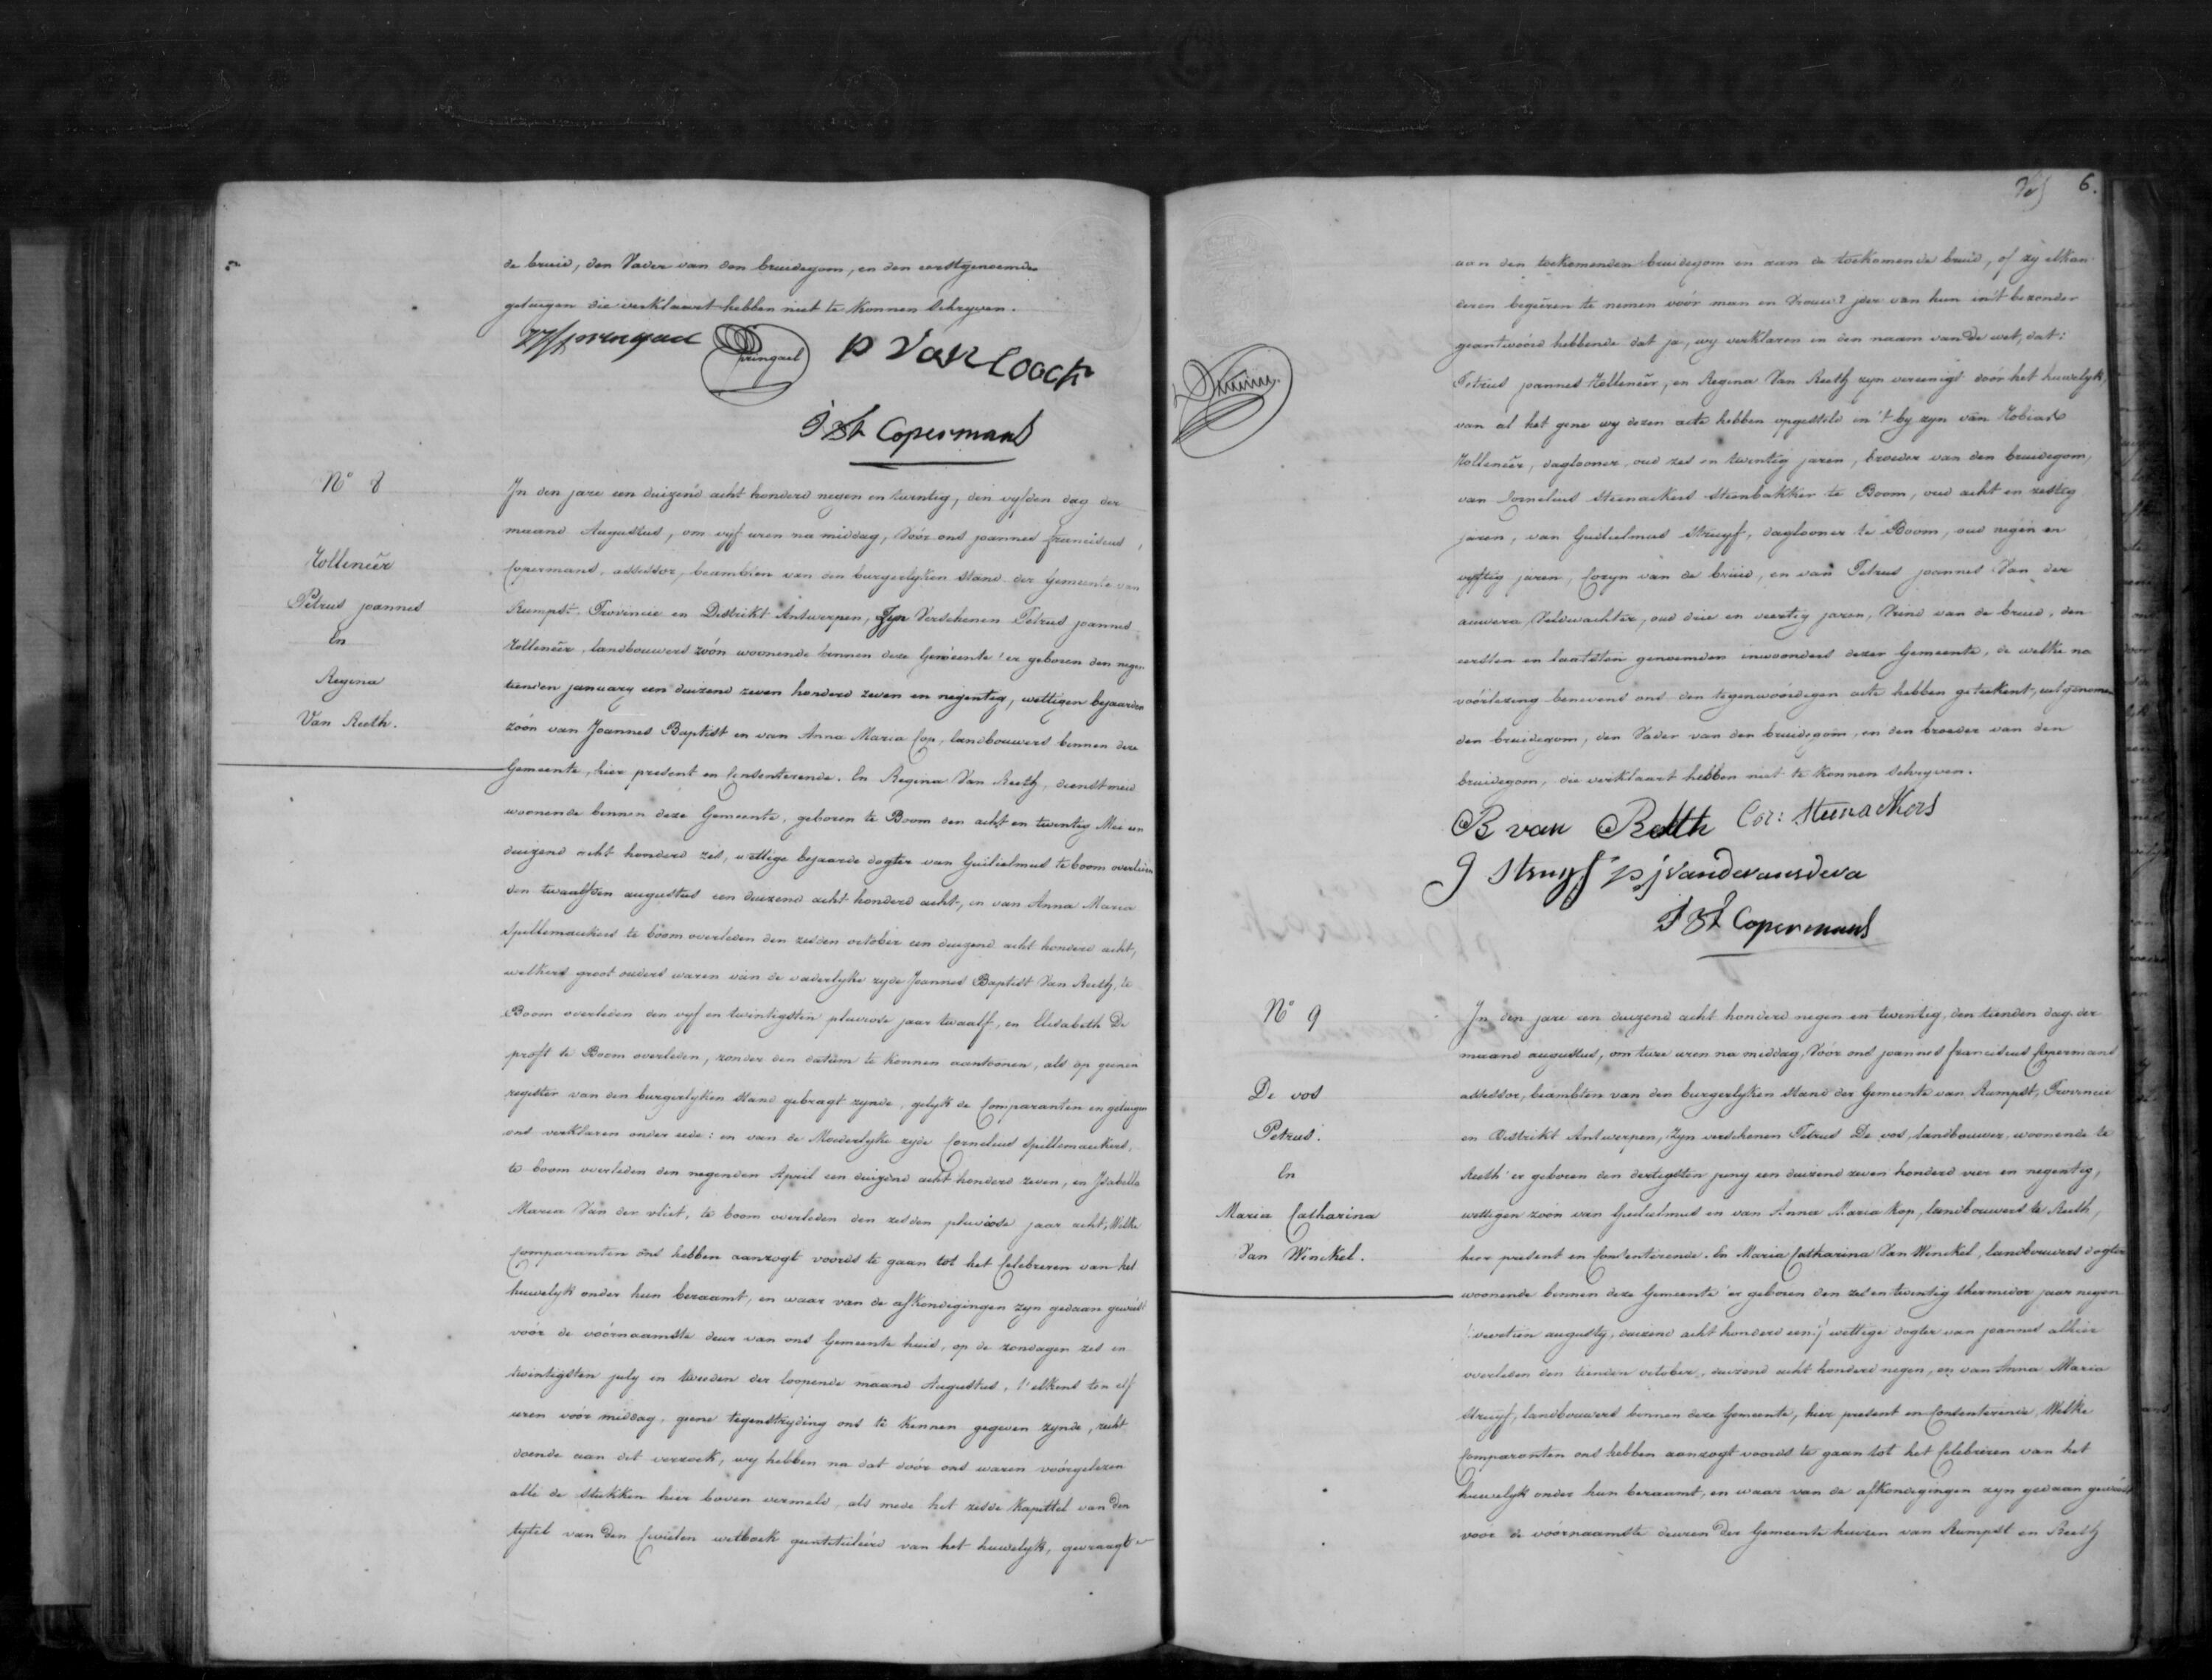 de bruid, den Vader van den bruidegom, en den eerstgenoemden
getuigen die verklaart hebben niet te konnen schryven.
pringael
P Van Loock
J Fs Copermans
N° 8
Zolleneer
Petrus joannes
En
Regina
Van Reeth.
In den jare een duizend acht honderd negen en twintig, den vyfden dag der
maand Augustus, om vyf uren na middag, Vóór ons joannes franciscus
Copermans, assessor, beambten van den burgerlyken stand der Gemeente van
Rumpst, Provincie en Distrikt Antwerpen, Zyn Verschenen Petrus joannes
Zolleneer, landbouwers zóón woonende binnen deze Gemeente er geboren den negen
tienden january een duizend zeven honderd zeven en negentig, wettigen bejaarden
zóón van Joannes Baptist en van Anna Maria Cop, landbouwers binnen deze
Gemeente, hier present en Consenterende. En Regina Van Reeth, dienstmeid
woonende binnen deze Gemeente, geboren te Boom den acht en twintig Mei een
duizend acht honderd zes, wettige bejaarde dogter van Guilielmus te boom overleden
den twaalfden augustus een duizend acht honderd acht, en van Anna Maria
Spillemaeckers te boom overleden den zesden october een duizend acht honderd acht,
welkers groot ouders waren van de vaderlyke zyde Joannes Baptist Van Reeth, te
Boom overleden den vyf en twintigsten pluviose jaar twaalf, en Elisabeth De
proft te Boom overleden, zonder den datum te konnen aantoonen, als op geenen
register van den burgerlyken stand gebragt zynde, gelyk de Comparanten en getuigen
ons verklaren onder eede: en van de Moederlyke zyde Cornelius Spillemaeckers,
te boom overleden den negenden April een duizend acht honderd zeven, en Isabella
Maria Van der vliet, te boom overleden den zesden pluviose jaar acht, Welke
Comparanten ons hebben aanzogt voords te gaan tot het Celebreren van het
huwelyk onder hun beraamt, en waar van de afkondigingen zyn gedaan geweest
vóór de vóórnaamste deur van ons Gemeente huis, op de zondagen zes en
twintigsten july en tweeden der loopende maand Augustus, t'elkens ten elf
uren vóór middag, geene tegenstryding ons te kennen gegeven zynde, recht
doende aan dit verzoek, wy hebben na dat dóór ons waren vóórgelezen
alle de stukken hier boven vermeld, als mede het zesde kapittel van den
tytel van den Civielen wetboek geintituleerd van het huwelyk, gevraagt
6.
aan den toekomenden bruidegom en aan de toekomende bruid, of zy elkan-
deren begeeren te nemen vóór man en Vrouw? jder van hun in't bezonder
geantwóórd hebbende dat ja, wy verklaren in den naam van de wet, dat:
Petrus joannes Zolleneer, en Regina Van Reeth zyn vereenigt dóór het huwelyk,
van al het gene wy dezen acte hebben opgesteld in 't by zyn van Tobias
Zolleneer, daglooner, oud zes en twintig jaren, broeder van den bruidegom,
van Cornelius Steenackers steenbakker te Boom, oud acht en zestig
jaren, van Guilielmus Struyf, daglooner te Boom, oud negen en
vyftig jaren, Cozyn van de bruid, en van Petrus joannes Van der
auwera, Veldwachter, oud drie en veertig jaren, Vrind van de bruid, den
eersten en laatsten genoemden inwoonders dezer Gemeente, de welke na
vóórlezing benevens ons den tegenwóórdigen acte hebben geteekent, uitgenomen
den bruidegom, den Vader van den bruidegom, en den broeder van den
bruidegom, die verklaart hebben niet te konnen schryven.
B van Reeth Cor: Steenackers
G Struyf pj vanderauwera
J Fs Copermans
N° 9
De vos
Petrus.
En
Maria Catharina
Van Winckel.
In den jare een duizend acht honderd negen en twintig, den tienden dag der
maand augustus, om twee uren na middag, Vóór ons joannes franciscus Copermans
assessor, beambten van den burgerlyken stand der Gemeente van Rumpst, Provincie
en Distrikt Antwerpen, Zyn verschenen Petrus De vos, landbouwer, woonende te
Reeth er geboren den dertigsten juny een duizend zeven honderd vier en negentig,
wettigen zoón van Guilielmus en van Anna Maria Kop, landbouwers te Reeth,
hier present en Consenterende. En Maria Catharina Van Winckel, landbouwers dogter
woonende binnen deze Gemeente er geboren den zes en twintig thermidor jaar negen
(veertien augusty, duizend acht honderd een) wettige dogter van joannes alhier
overleden den tienden october, duizend acht honderd negen, en van Anna Maria
Struyf, landbouwers binnen deze Gemeente, hier present en Consenterende, Welke
Comparanten ons hebben aanzogt voords te gaan tot het Celebreren van het
huwelyk onder hun beraamt, en waar van de afkondigingen zyn gedaan geweest
voór de vóórnaamste deuren der Gemeente huizen van Rumpst en Reeth